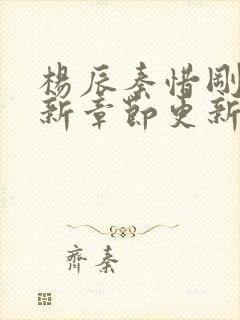 楊辰秦惜剛
新章節更新
齊秦